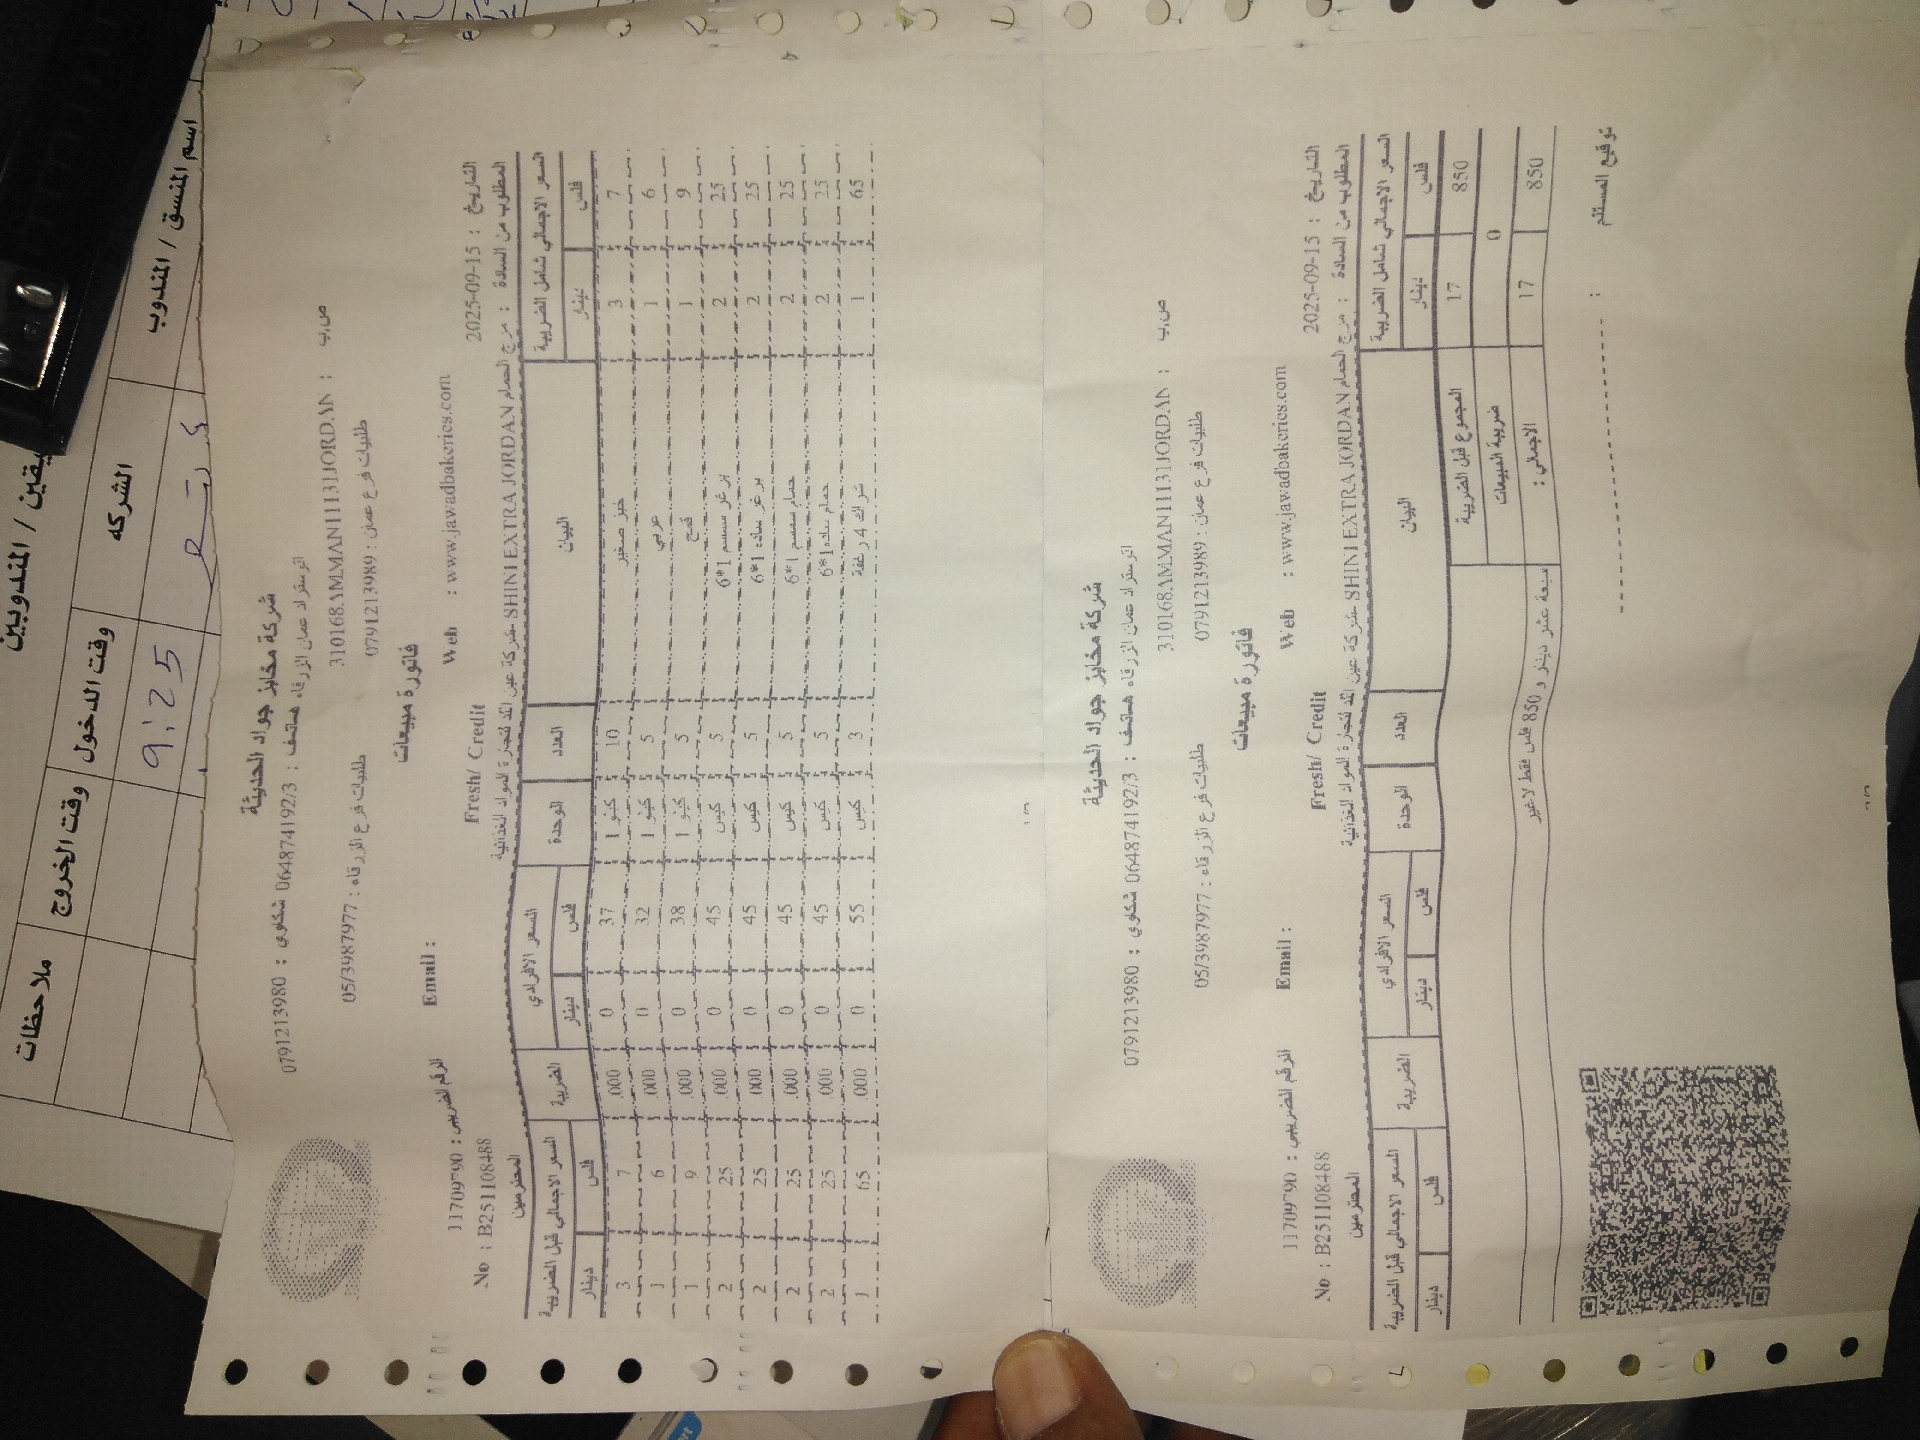 ملاحظات وقت الخروج وقت الدخول الشركه اسم المنسق / المندوب
9:25
شركة مخابز جواد الحديثة
اتوستراد عمان الزرقاء هاتف : 064874192/3 شكاوي : 0791213980
ص.ب : 310168AMMAN11131JORDAN
طلبيات فرع عمان : 0791213989 طلبيات فرع الزرقاء : 05/3987977
فاتورة مبيعات
Email :
Web : www.jawadbakeries.com
الرقم الضريبي :
التاريخ : 2025-09-15 Fresh/ Credit No : B251108488
المطلوب من السادة : مرج الحمام SHINI EXTRA JORDAN شركة عين الغد لتجارة المواد الغذائية المحترمين
السعر الاجمالي شامل الضريبة البيان العدد الوحدة السعر الافرادي الضريبة السعر الاجمالي قبل الضريبة
دينار فلس دينار فلس دينار فلس
3 7 خبز صغير 10 كيلو 1 0 37 .000 3 7
1 6 عربي 5 كيلو 1 0 32 .000 1 6
1 9 قمح 5 كيلو 1 0 38 .000 1 9
2 25 برغر سمسم 1*6 5 كيس 0 45 .000 2 25
2 25 برغر ساده 1*6 5 كيس 0 45 .000 2 25
2 25 حمام سمسم 1*6 5 كيس 0 45 .000 2 25
2 25 حمام ساده 1*6 5 كيس 0 45 .000 2 25
1 65 شراك 4 رغفة 3 كيس 0 55 .000 1 65
شركة مخابز جواد الحديثة
اتوستراد عمان الزرقاء هاتف : 064874192/3 شكاوي : 0791213980
ص.ب : 310168AMMAN11131JORDAN
طلبيات فرع عمان : 0791213989 طلبيات فرع الزرقاء : 05/3987977
فاتورة مبيعات
Email :
Web : www.jawadbakeries.com
الرقم الضريبي :
التاريخ : 2025-09-15 Fresh/ Credit No : B251108488
المطلوب من السادة : مرج الحمام SHINI EXTRA JORDAN شركة عين الغد لتجارة المواد الغذائية المحترمين
السعر الاجمالي شامل الضريبة البيان العدد الوحدة السعر الافرادي الضريبة السعر الاجمالي قبل الضريبة
دينار فلس دينار فلس دينار فلس
17 850 المجموع قبل الضريبة
0 ضريبة المبيعات
17 850 الاجمالي :
سبعة عشر دينار و 850 فلس فقط لاغير
توقيع المستلم :